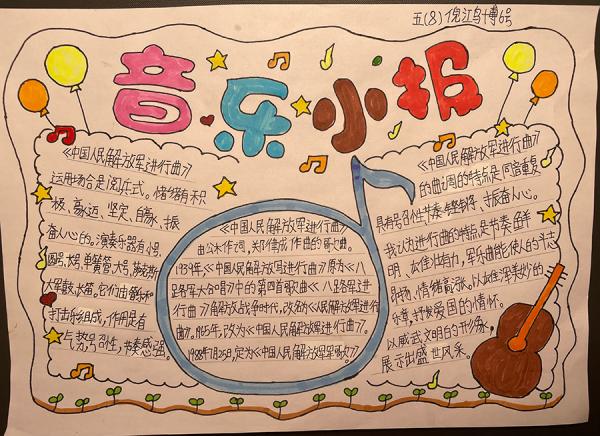 五(8)倪江鸟博6号
音乐小报
《中国人民解放军进行曲》
运用场合是阅兵式。情绪有积
极、豪迈、坚定、自豪、振
奋人心的。演奏乐器有小号、
圆号、大号、单簧管、
大军鼓、长笛。它们由管乐和
打击乐组成,作用是有
气势、号召性,节奏感强。
《中国人民解放军进行曲》
由公木作词,郑律成作曲的歌曲。
1939年《中国人民解放军进行曲》原为《八
路军大合唱》中的第四首歌曲《八路军进
行曲》解放战争时代,改名为《人民解放军进行
曲》。1951年,改为《中国人民解放军进行曲》。
1988年7月25日,定为《中国人民解放军军歌》。
《中国人民解放军进行曲》
的曲调的特点是同音重复
具有号召性节奏铿锵、振奋人心。
我认为进行曲的特点是节奏鲜
明、雄壮有力,军乐曲能使人的斗志
昂扬、情绪高涨。以雄浑美妙的
乐章,抒发爱国的情怀。
以威武文明的形象,
展示出盛世风采。